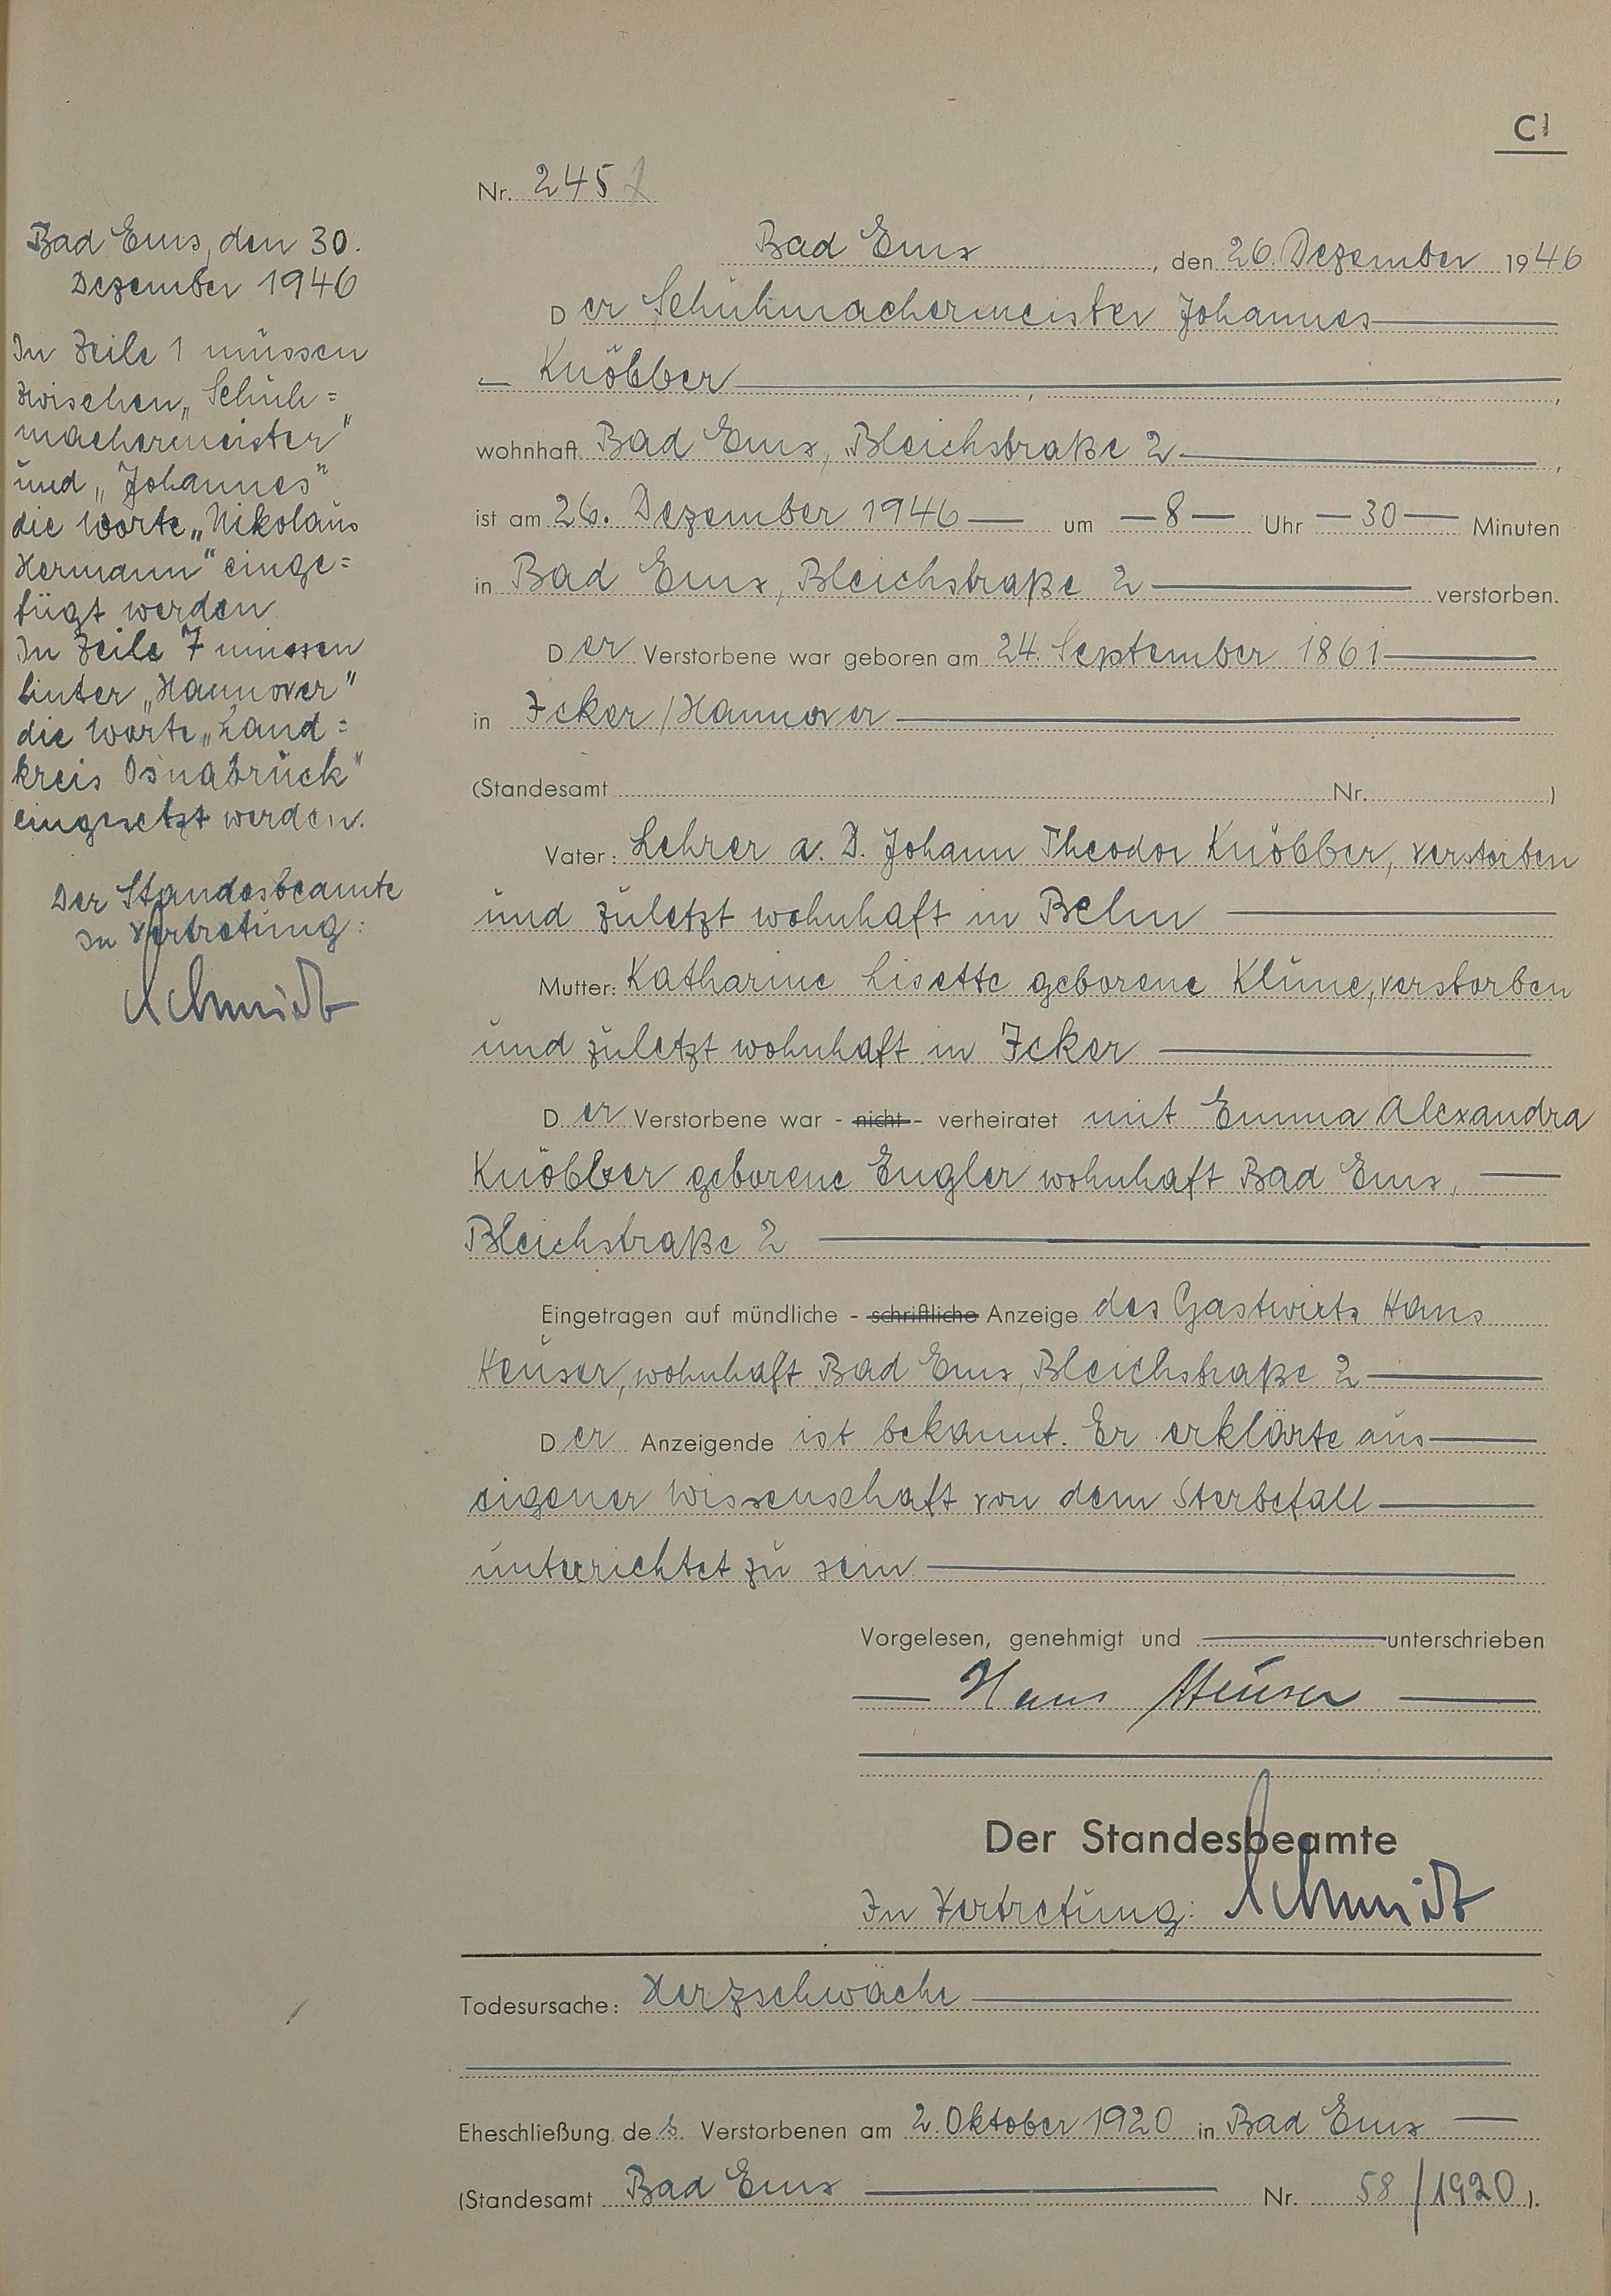 C
Nr. 245
Bad Ems, den 26. Dezember 1946
Der Schuhmachermeister Johannes
Knöbber
wohnhaft Bad Ems, Bleichstraße 2
ist am 26. Dezember 1946 um 8 Uhr 30 Minuten
in Bad Ems, Bleichstraße 2 verstorben.
Der Verstorbene war geboren am 24. September 1861
in Icker / Hannover
(Standesamt Nr. )
Vater: Lehrer a. D. Johann Theodor Knöbber, verstorben
und zuletzt wohnhaft in Belm
Mutter: Katharine Lisette geborene Klüne, verstorben
und zuletzt wohnhaft in Icker
Der Verstorbene war - nicht - verheiratet mit Emma Alexandra
Knöbber geborene Engler wohnhaft Bad Ems,
Bleichstraße 2
Eingetragen auf mündliche - schriftliche Anzeige des Gastwirts Hans
Heuser, wohnhaft Bad Ems, Bleichstraße 2
Der Anzeigende ist bekannt. Er erklärte aus
eigener Wissenschaft von dem Sterbefall
unterrichtet zu sein
Vorgelesen, genehmigt und unterschrieben
Hans Heuser
Der Standesbeamte
In Vertretung: Schmidt
Todesursache: Herzschwäche
Eheschließung des Verstorbenen am 2. Oktober 1920 in Bad Ems
(Standesamt Bad Ems Nr. 58/1920).
Bad Ems, den 30.
Dezember 1946
In Zeile 1 müssen
zwischen „Schuh=
machermeister"
und „Johannes"
die Worte „Nikolaus
Hermann" einge=
fügt werden
In Zeile 7 müssen
hinter „Hannover"
die Worte „Land=
kreis Osnabrück"
eingesetzt werden.
Der Standesbeamte
In Vertretung:
Schmidt